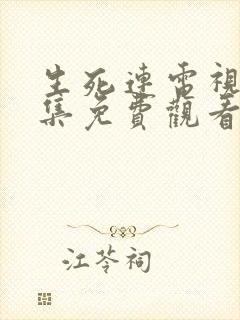 生死連電視
集免費觀看
江苓祠